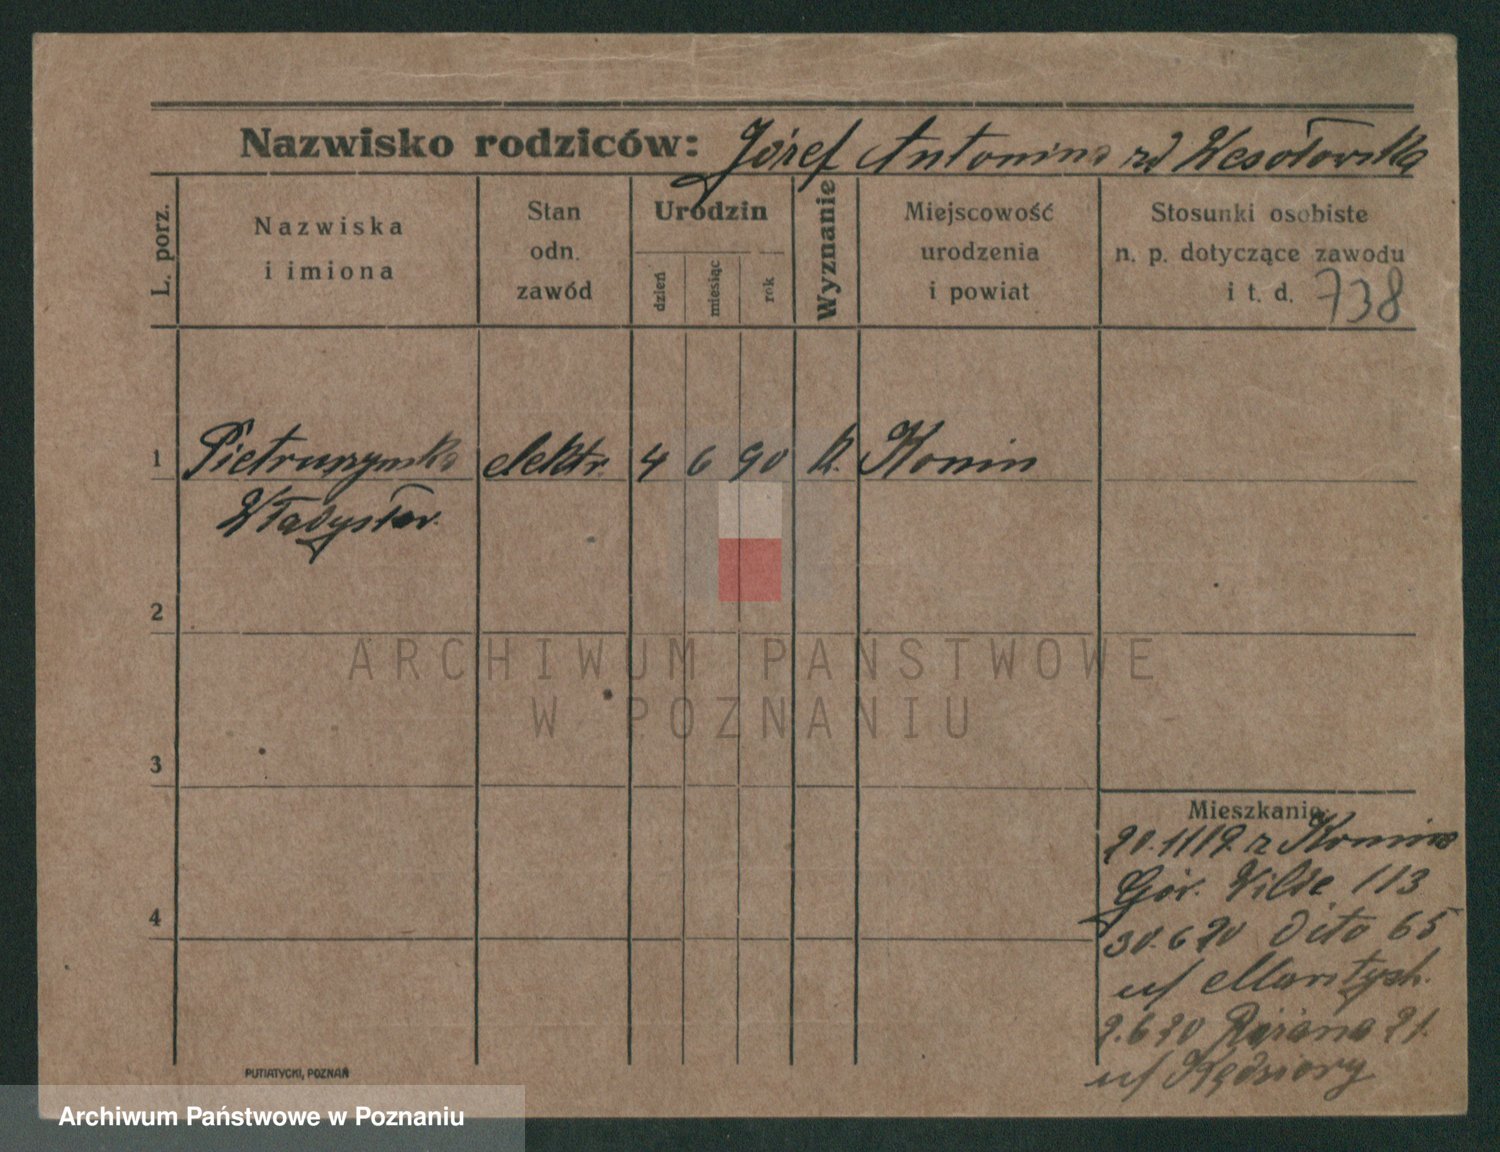 Nazwisko rodziców: Józef Antonina zd Wesołowska
L. porz.
Nazwiska
i imiona
Stan
odn.
zawód
Urodzin
dzień
miesiąc
rok
Wyznanie
Miejscowość
urodzenia
i powiat
Stosunki osobiste
n. p. dotyczące zawodu
i t. d. 738
1 elektr. 4 6 90 k. Konin
Władysław.
2
ARCHIWUM PAŃSTWOWE
W POZNANIU
3
Mieszkanie:
20.1119 z Konina
Gór. Wilde 113
4
30.6 20 dito 65
u/
2.6 20 Różana 21.
u/ Kędziory
PUTIATYCKI, POZNAŃ
Archiwum Państwowe w Poznaniu